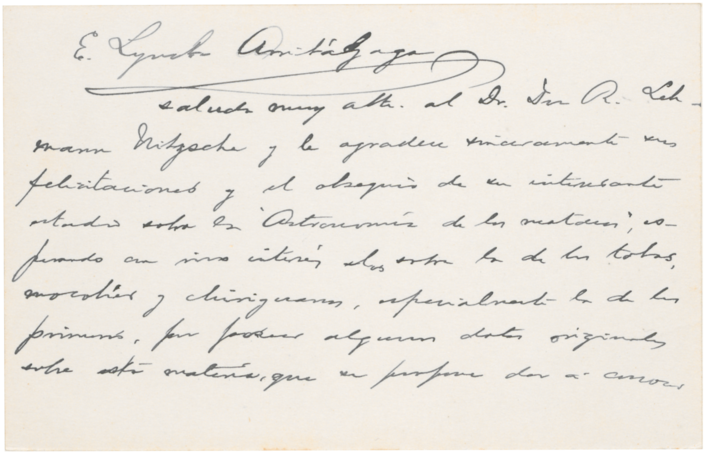 E. Lynch Arribálzaga
saluda muy atte. al Dr. Don R. Leh-
mann Nitzsche y le agradece sinceramente sus
felicitaciones y el obsequio de su interesante
estudio sobre la "Astronomía de los matacos", es-
perando con vivo interés los sobre la de los tobas,
mocovíes y chiriguanos, especialmente la de los
primeros, por poseer algunos datos originales
sobre esta materia, que se propone dar a conocer